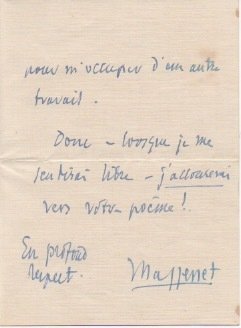 pour m'occuper d'un autre
travail.
Donc – lorsque je me
sentirai libre – j'accourrai
vers votre poème !
En profond
respect.
Massenet